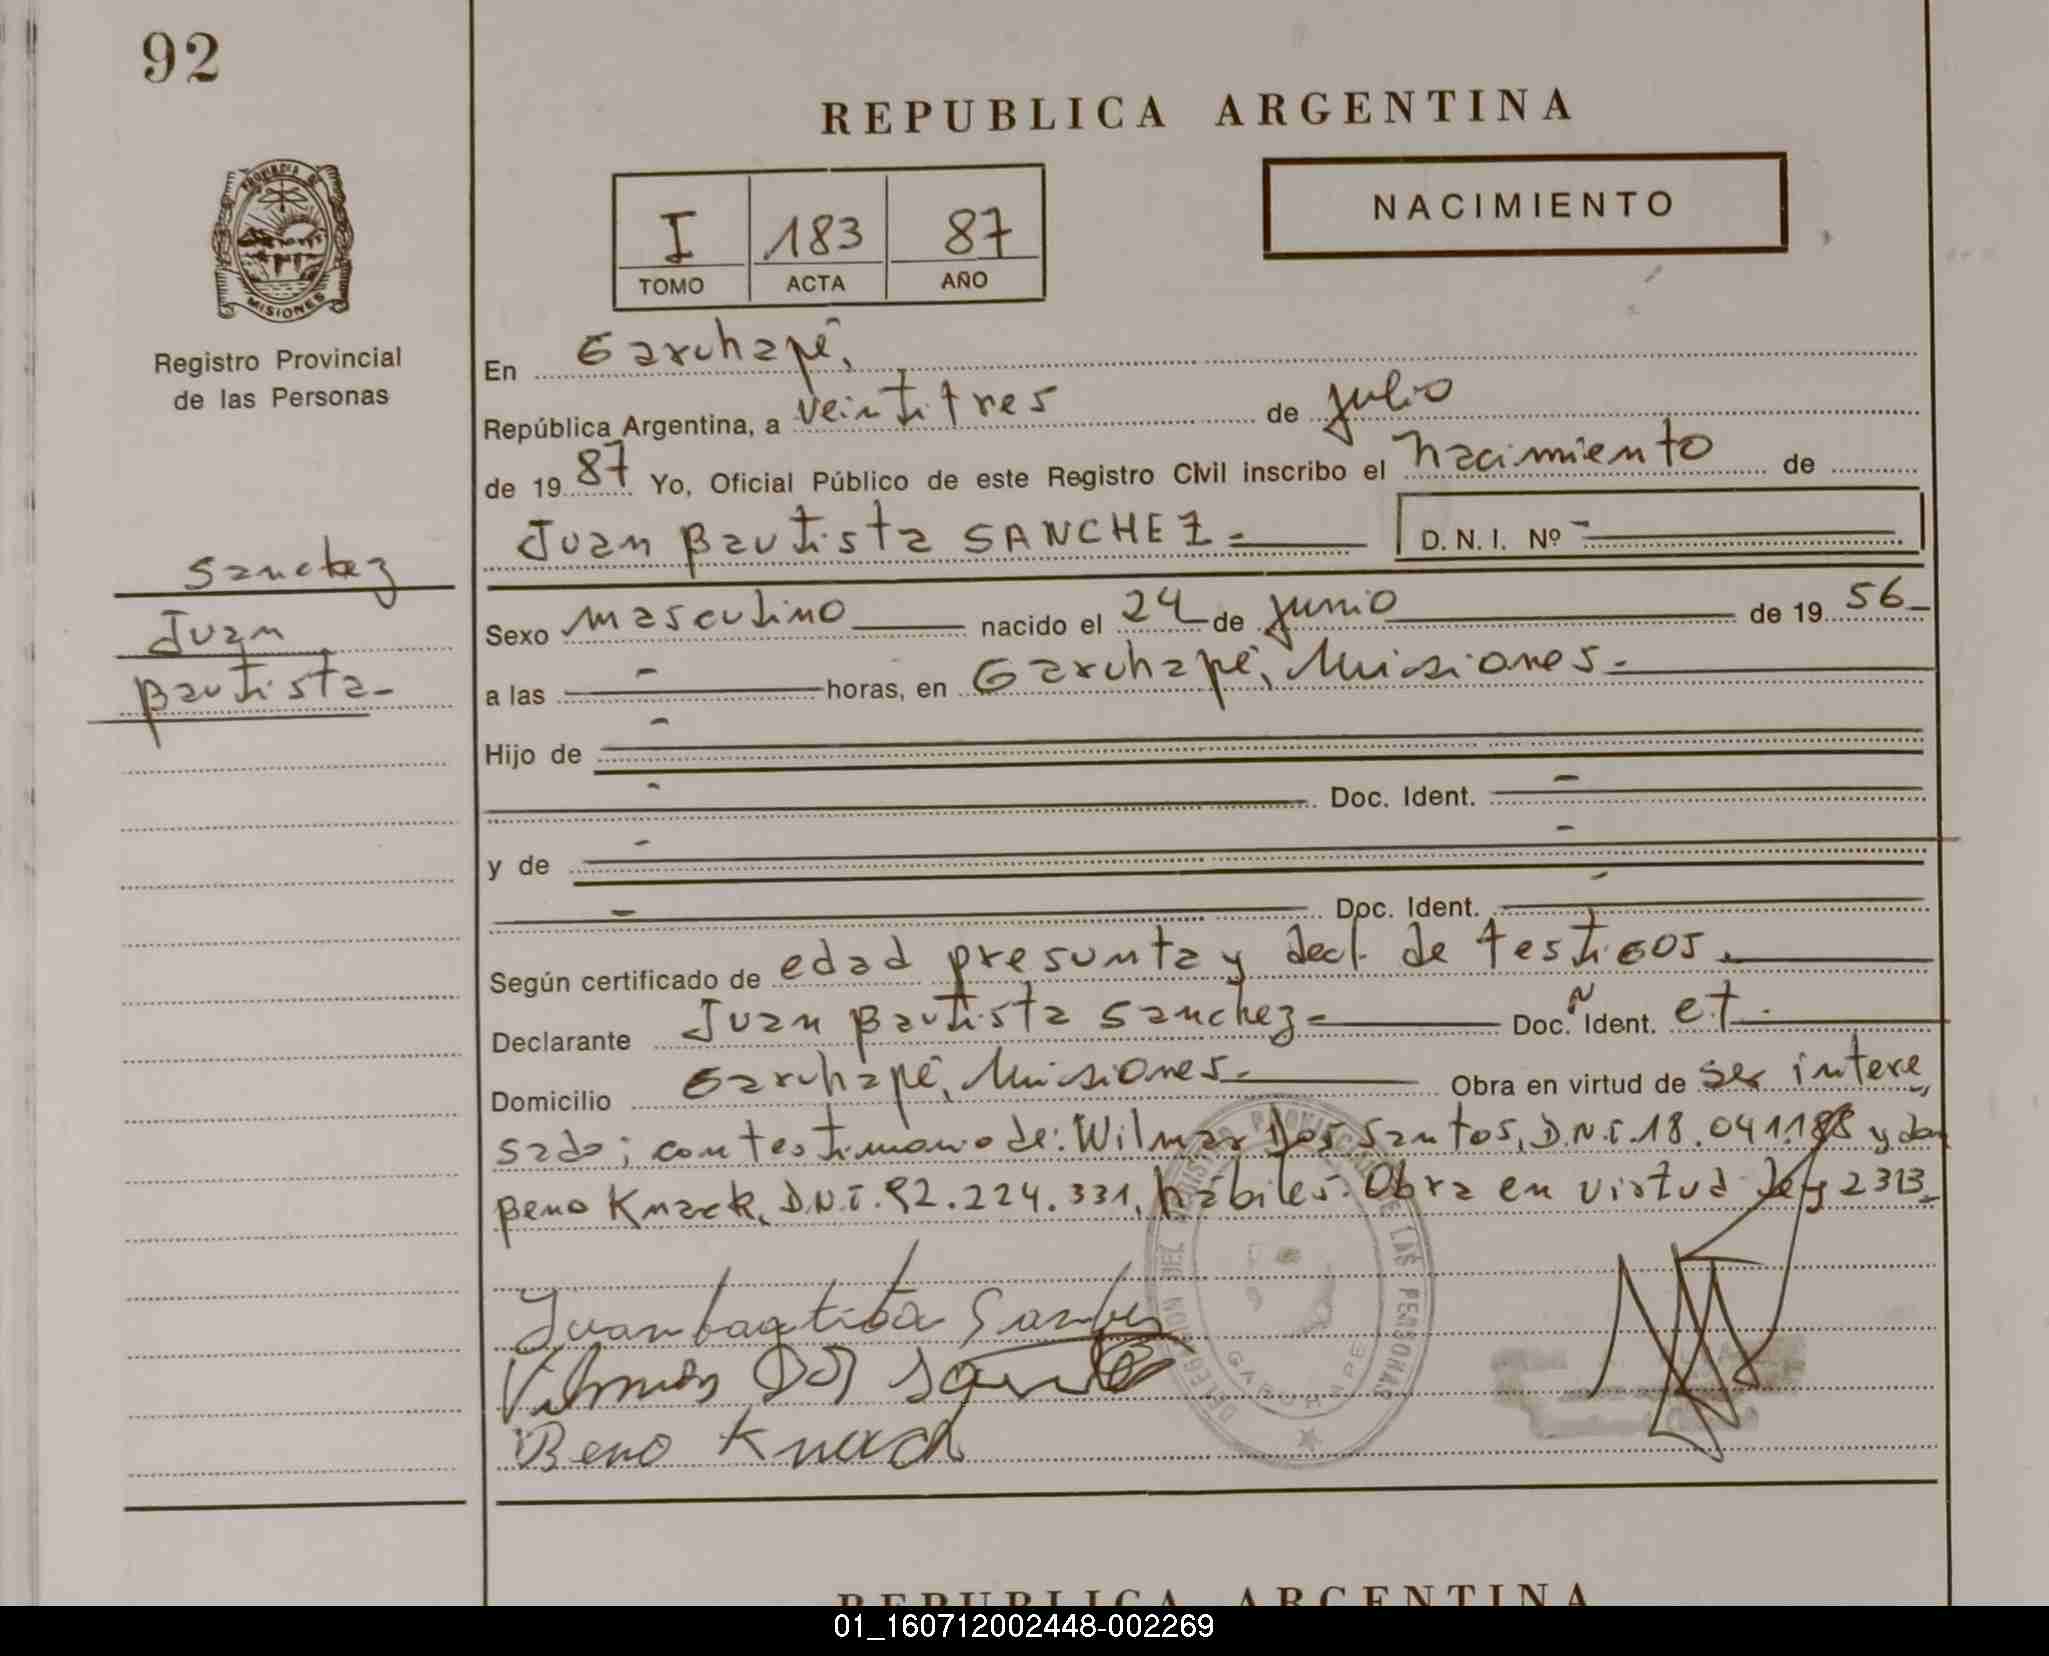 92
REPUBLICA ARGENTINA
NACIMIENTO
I 183 87
TOMO ACTA AÑO
PROVINCIA DE
MISIONES
Registro Provincial
de las Personas
Sanchez
Juan
Bautista-
En Garuhapé,
República Argentina, a veintitres de julio
de 19 87 Yo, Oficial Público de este Registro Civil inscribo el nacimiento de
Juan Bautista SANCHEZ.- D. N. I. Nº -
Sexo masculino nacido el 24 de junio de 19 56-
a las - horas, en Garuhapé, Misiones.-
Hijo de -
- Doc. Ident. -
y de -
- Doc. Ident. -
Según certificado de edad presunta y decl. de testigos.
Declarante Juan Bautista Sanchez- Doc. Ident. Ñ et.
Domicilio Garuhapé, Misiones.- Obra en virtud de ser intere,
sado; con testimonio de: Wilmar Dos Santos, D.N.I. 18.041.188 y don
Beno Knack, D.N.I. 92.224.331, hábiles. Obra en virtud Ley 2313-
Juan bautista Sanchez
Vilmar Dos Santos
Beno Knack
DELEGACION DEL REGISTRO PROVINCIAL DE LAS PERSONAS
GARUHAPE
REPUBLICA ARGENTINA
01_160712002448-002269